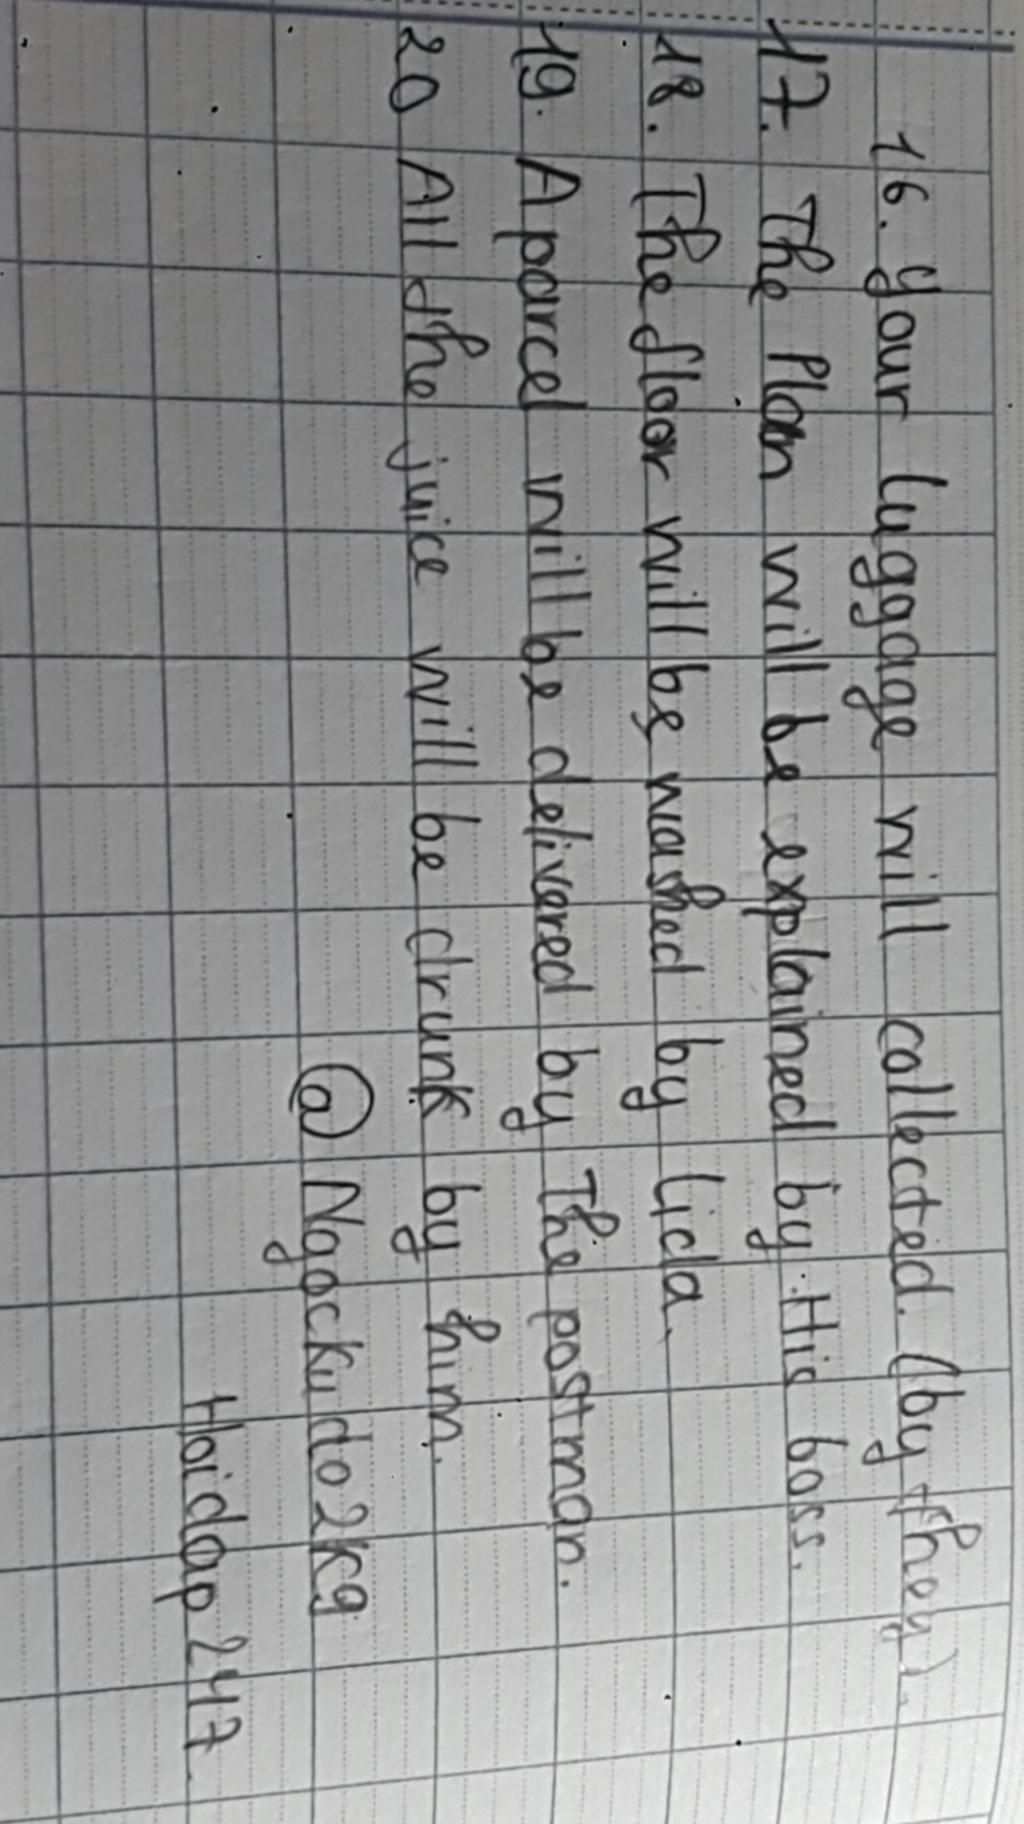 16. your luggage will collected. (by they).
17. The Plan will be explained by His boss.
18. The floor will be washed by lida.
19. A parcel will be delivered by The postman.
20 All the juice will be drunk by him.
@Ngockudo2k9
Hoidap247